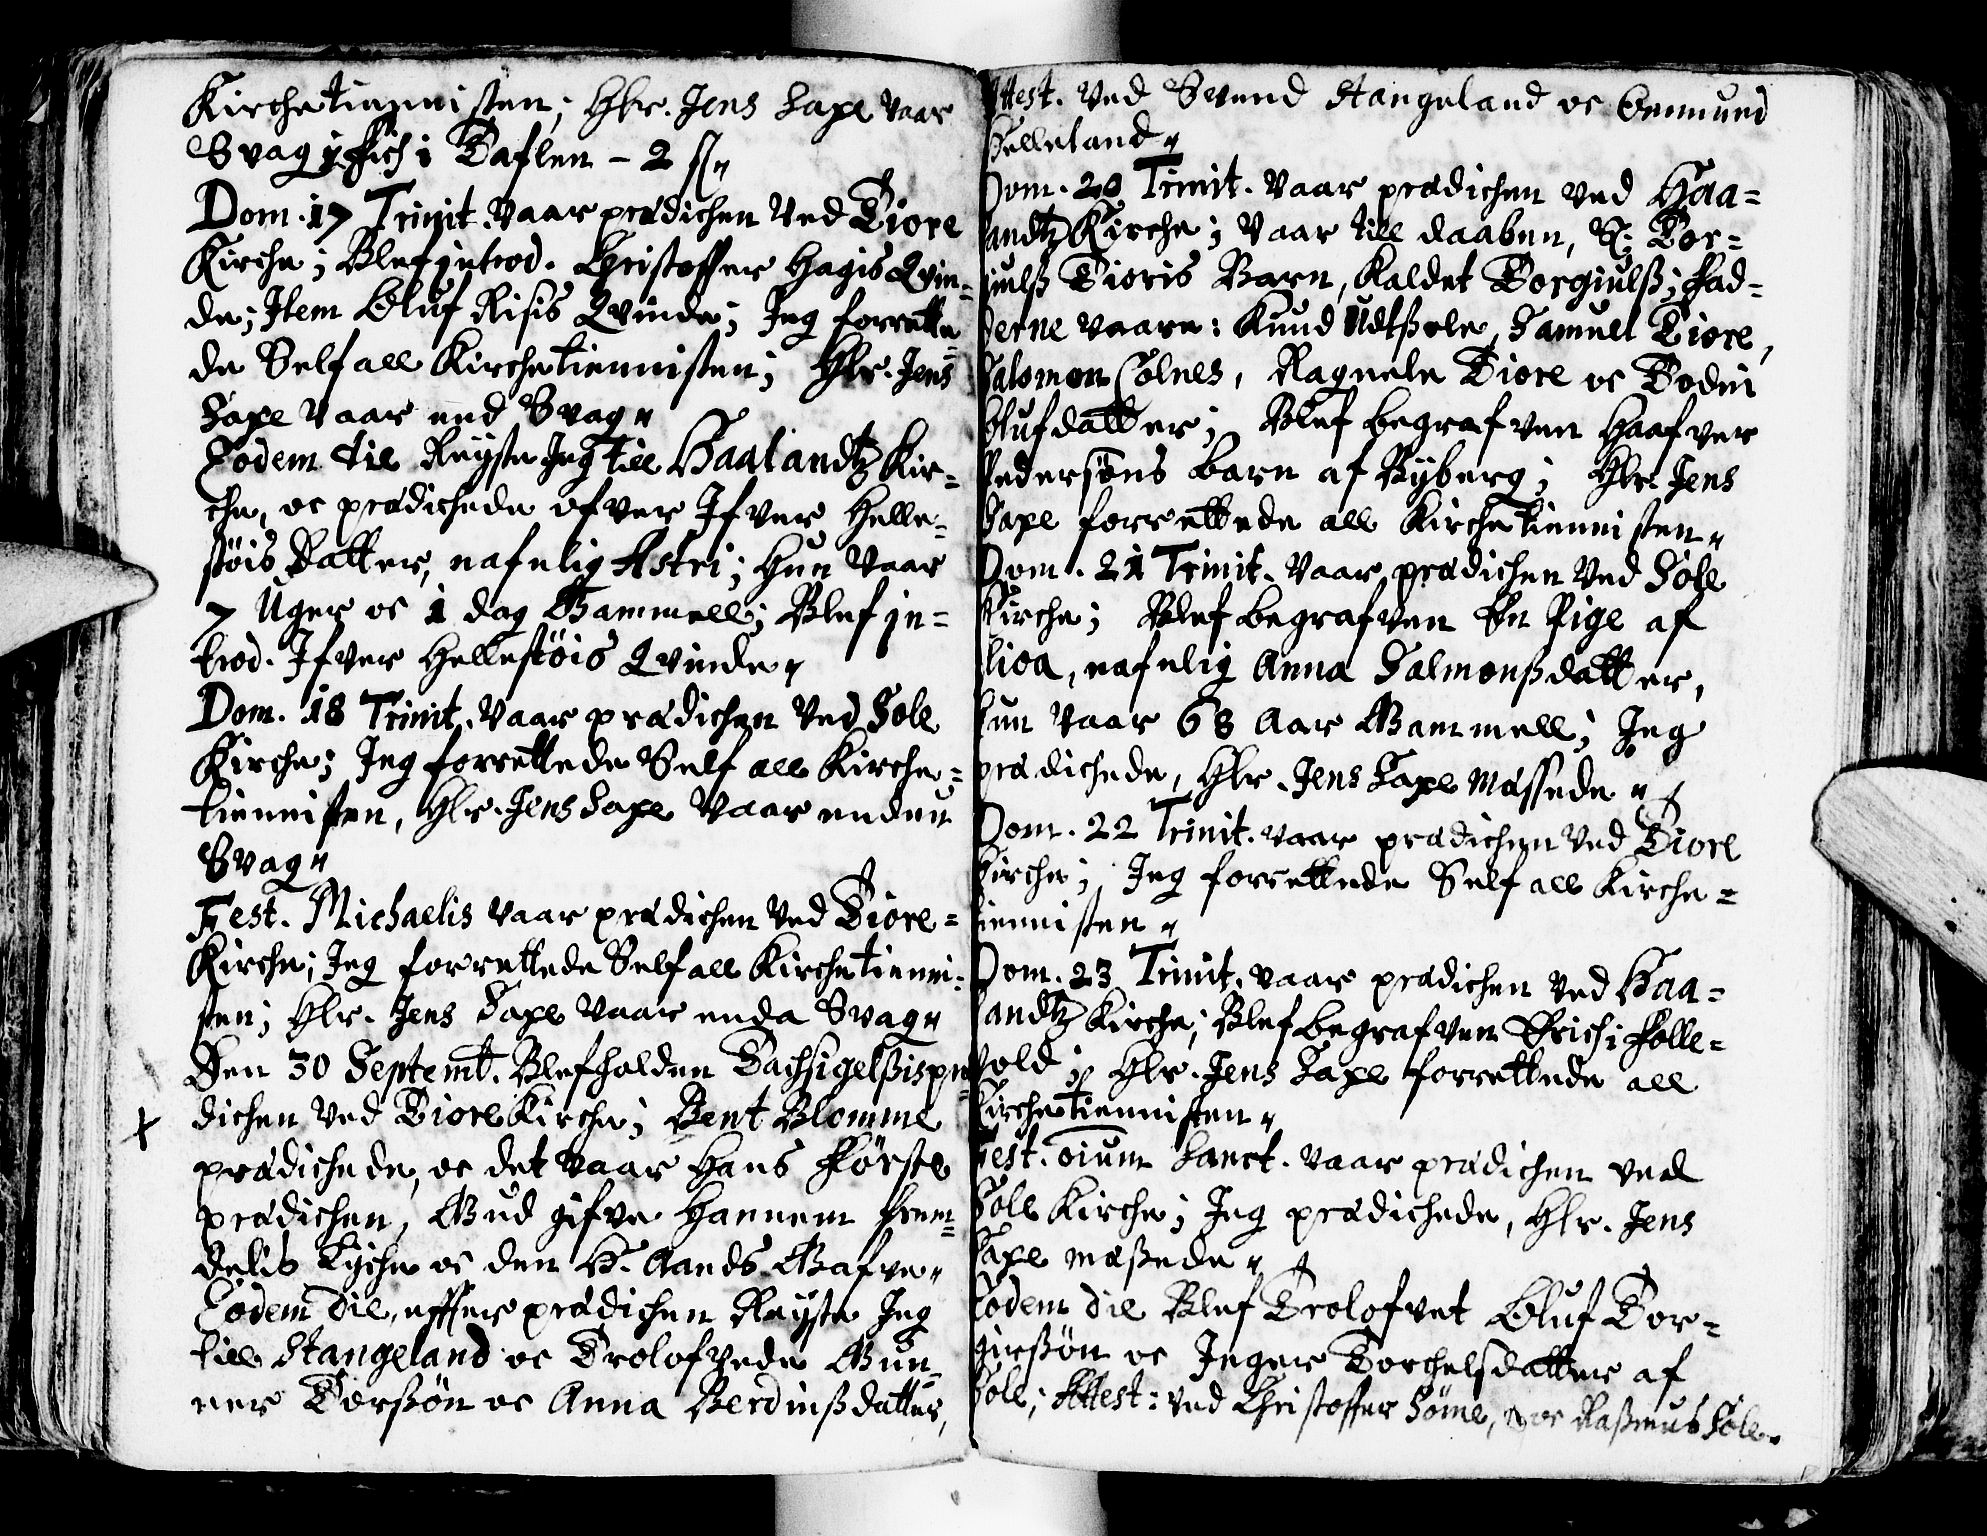 Kirchetiennisten; Hlr. Jens Saxe vaar
Svag; fich i Taflen - 2 ß
Dom. 17 Trinit. vaar prædichen ved Tiore
Kirche; Blef introd. Christoffer Hagis Qvin-
de; Item Oluf Risis Qvinde; Jeg forrette-
de Self all Kirchetiennisten; Hlr. Jens
Saxe vaar end Svag
Eodem die Reyste Jeg till Haalandtz Kir-
che, oc prædichede ofver Ifver Helle-
støis Datter, nafnlig Astri; Hun vaar
7 Uger oc 1 dag Gammell; Blef in-
trod. Ifver Hellestøis Qvinde
Dom. 18 Trinit. vaar prædichen ved Sole
Kirche; Jeg forrettede Self all Kirche-
tiennisten, Hlr. Jens Saxe vaar enden
Svag
Fest. Michaelis vaar prædichen ved Tiore-
Kirche; Jeg forrettede Self all Kirchetienni-
sten; Hlr. Jens Saxe vaar enda Svag
Den 30 Septemb. Blef holden Tachsigelßis præ-
dichen ved Tiore Kirche; Bent Blomme
prædichede, oc det vaar Hans Første
prædichen, Gud gifve Hannem frem-
delis Lyche oc den H. Aands Gafve
Eodem die, effter prædichen Reyste Jeg
till Stangeland oc Trolofvede Gun-
ner Torßøn oc Anna Berdinßdatter,
Attest. ved Svend Stangeland oc Enmund
Helleland
Dom. 20 Trinit. vaar prædichen ved Haa-
landtz Kirche; vaar till daaben, S: Tor-
giulß Tioris Barn, kaldet Torgiulß; Fad-
derne vaare: Knud Udtßole, Samuel Tiore,
Salomon Colnes, Ragnele Tiore oc Bodin
Olufdatter; Blef begrafven Haafver
Pedersøns barn af Ryberg; Hlr. Jens
Saxe forrettede all Kirchetiennisten
Dom. 21 Trinit. vaar prædichen ved Sole
Kirche; Blef begrafven En Pige af
Lioa, nafnlig Anna Salmonßdatter,
hun vaar 68 Aar Gammell; Jeg
prædichede, Hlr. Jens Saxe Messede
Dom. 22 Trinit. vaar prædichen ved Tiore
Kirche; Jeg forrettede Self all Kirche-
tiennisten
Dom. 23 Trinit. vaar prædichen ved Haa-
landtz Kirche; Blef begrafven Erich i Folle-
vold; Hlr. Jens Saxe forrettede all
Kirchetiennisten
Fest. oium Sanct. vaar prædichen ved
Sole Kirche; Jeg prædichede, Hlr. Jens
Saxe meßede
Eodem die Blef Trolofvet Oluf Tor-
girßøn oc Inger Torchelsdatter af
Sole; Attest: ved Christoffer Søme, oc Raßmus Sole.